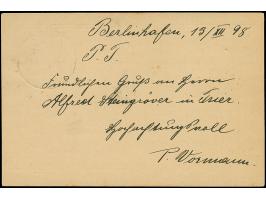 Berlinhafen, 13/XII 98
P. T.
Freundlichen Gruß an Herrn
Alfred Steingröver in Trier.
Hochachtungsvoll
P. Vormann.